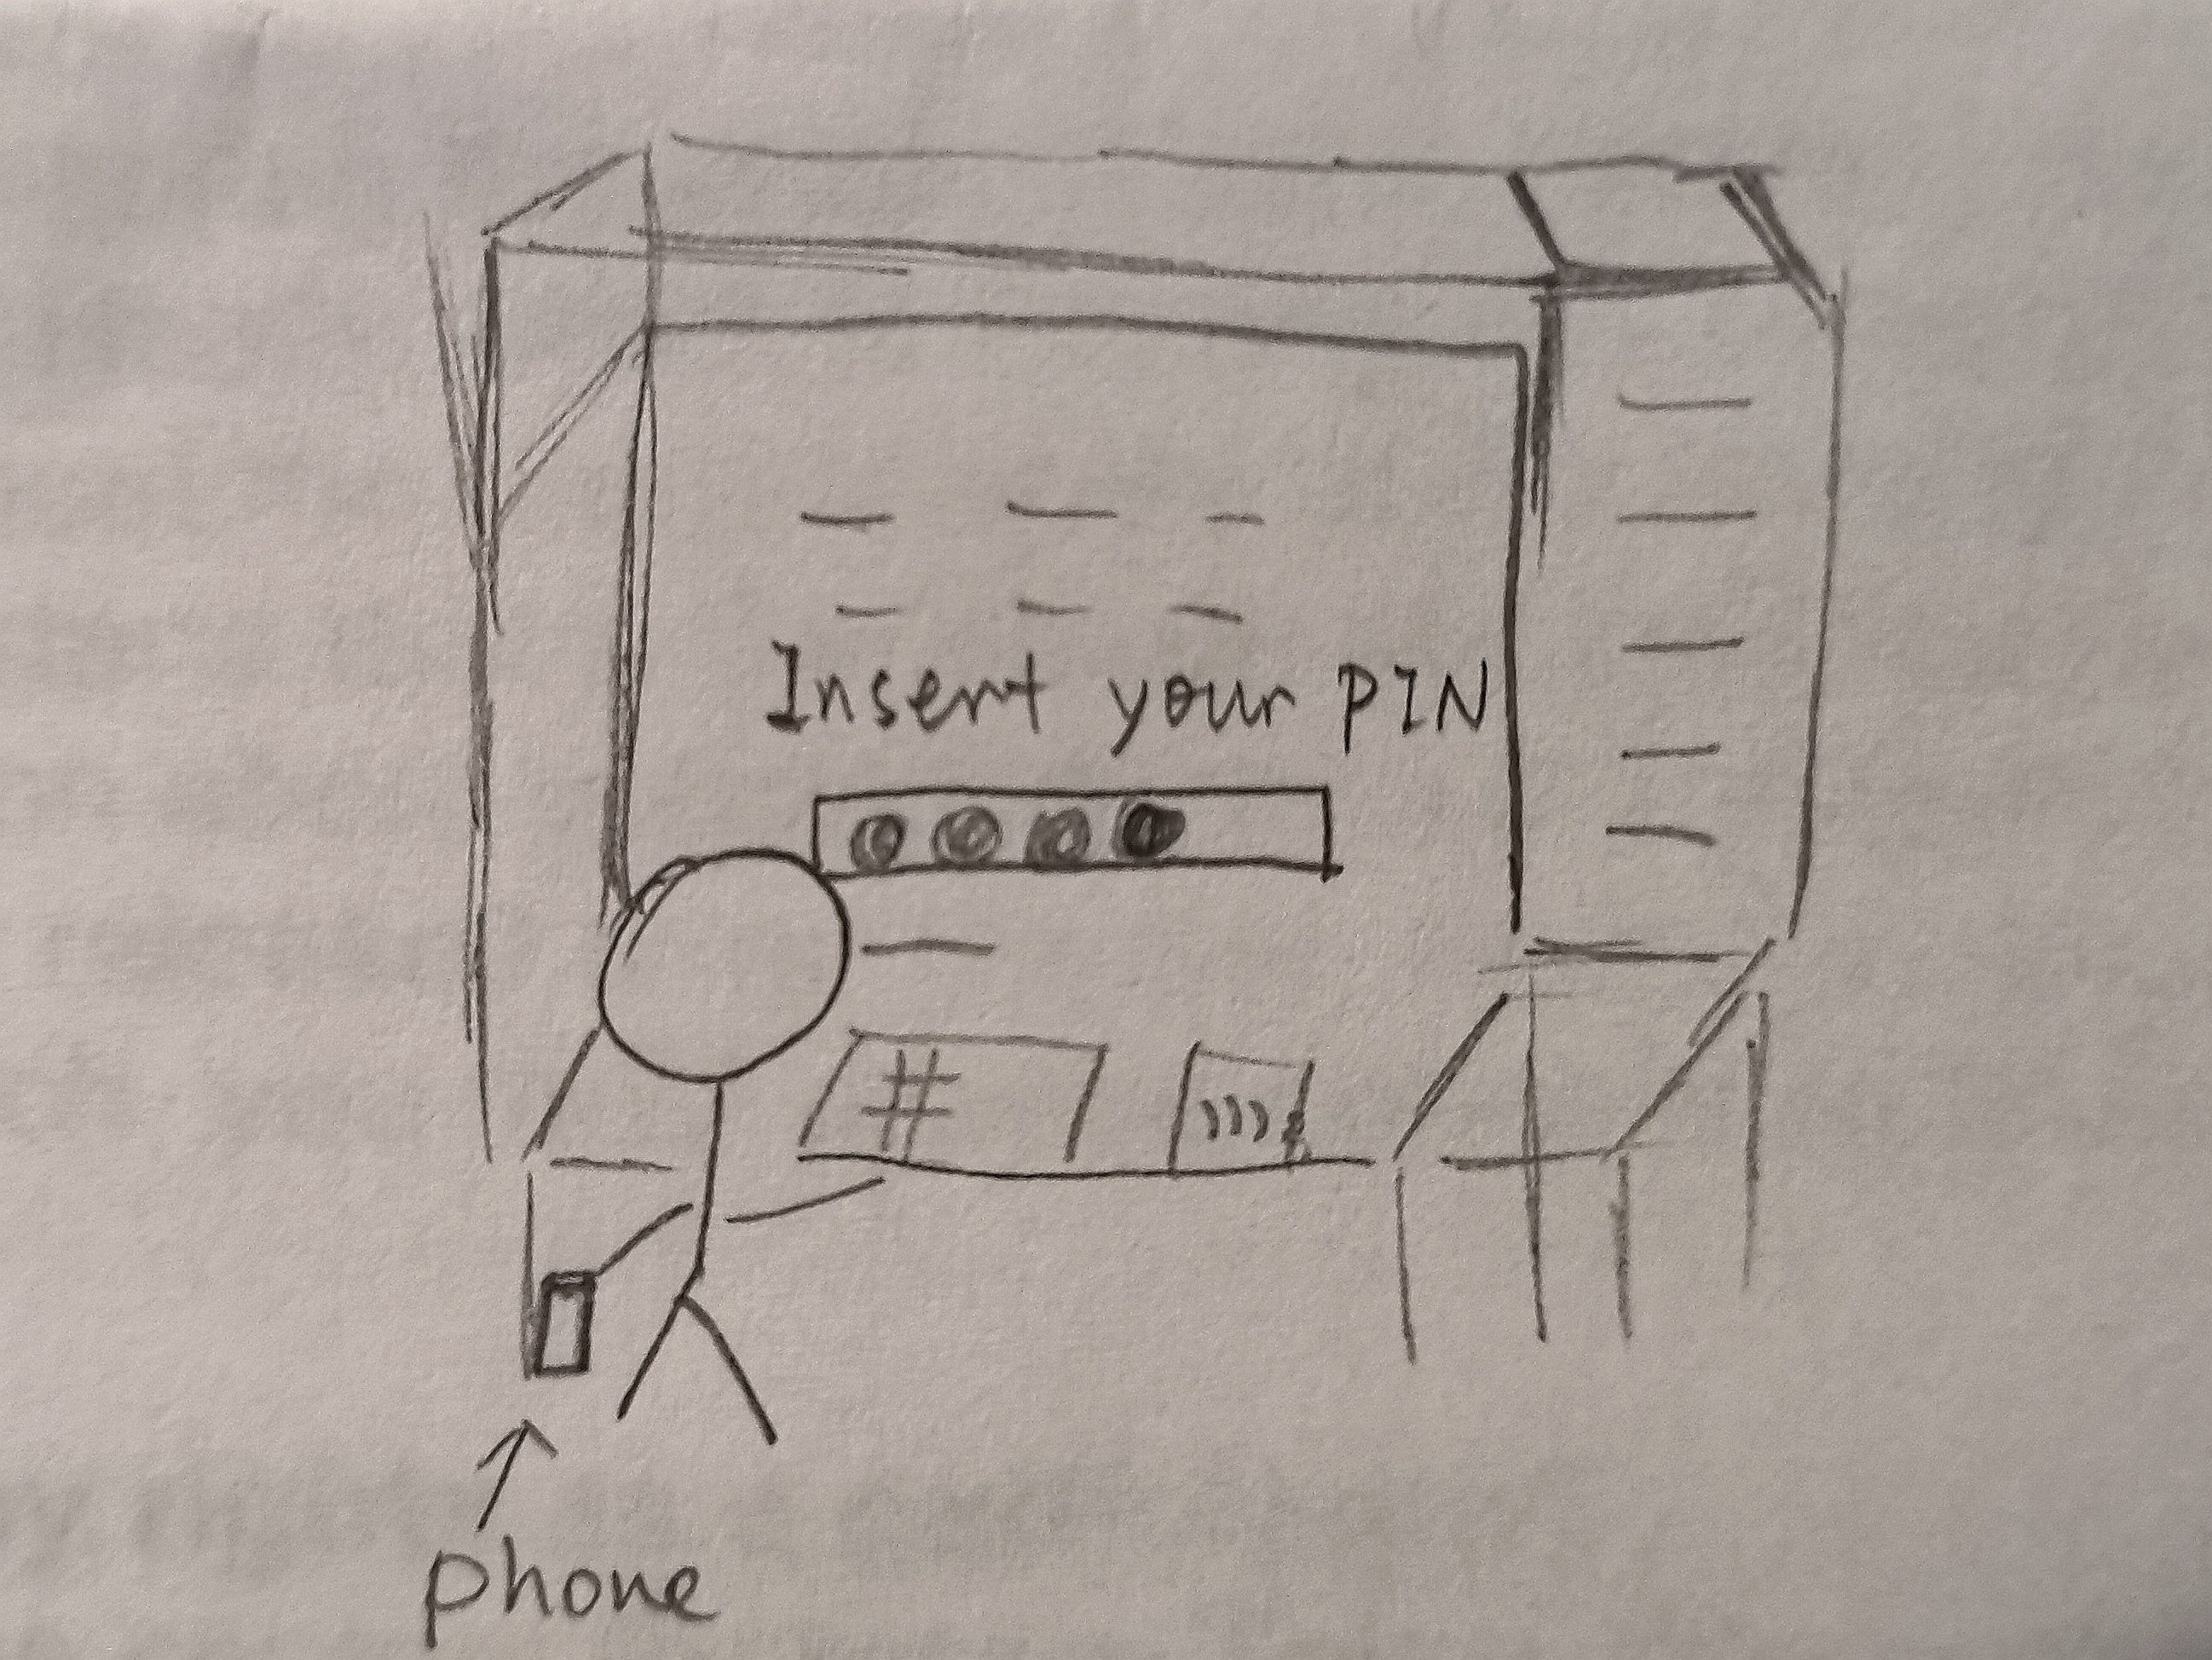 Insert your PIN
#
phone